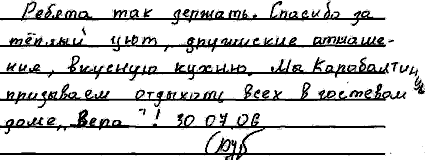 Ребята так держать. Спасибо за
тёплый уют, дружиские отноше-
ния, вкусную кухню. Мы Карабалтинцы
призываем отдыхать всех в гостевом
доме „Вера"! 30 07 06